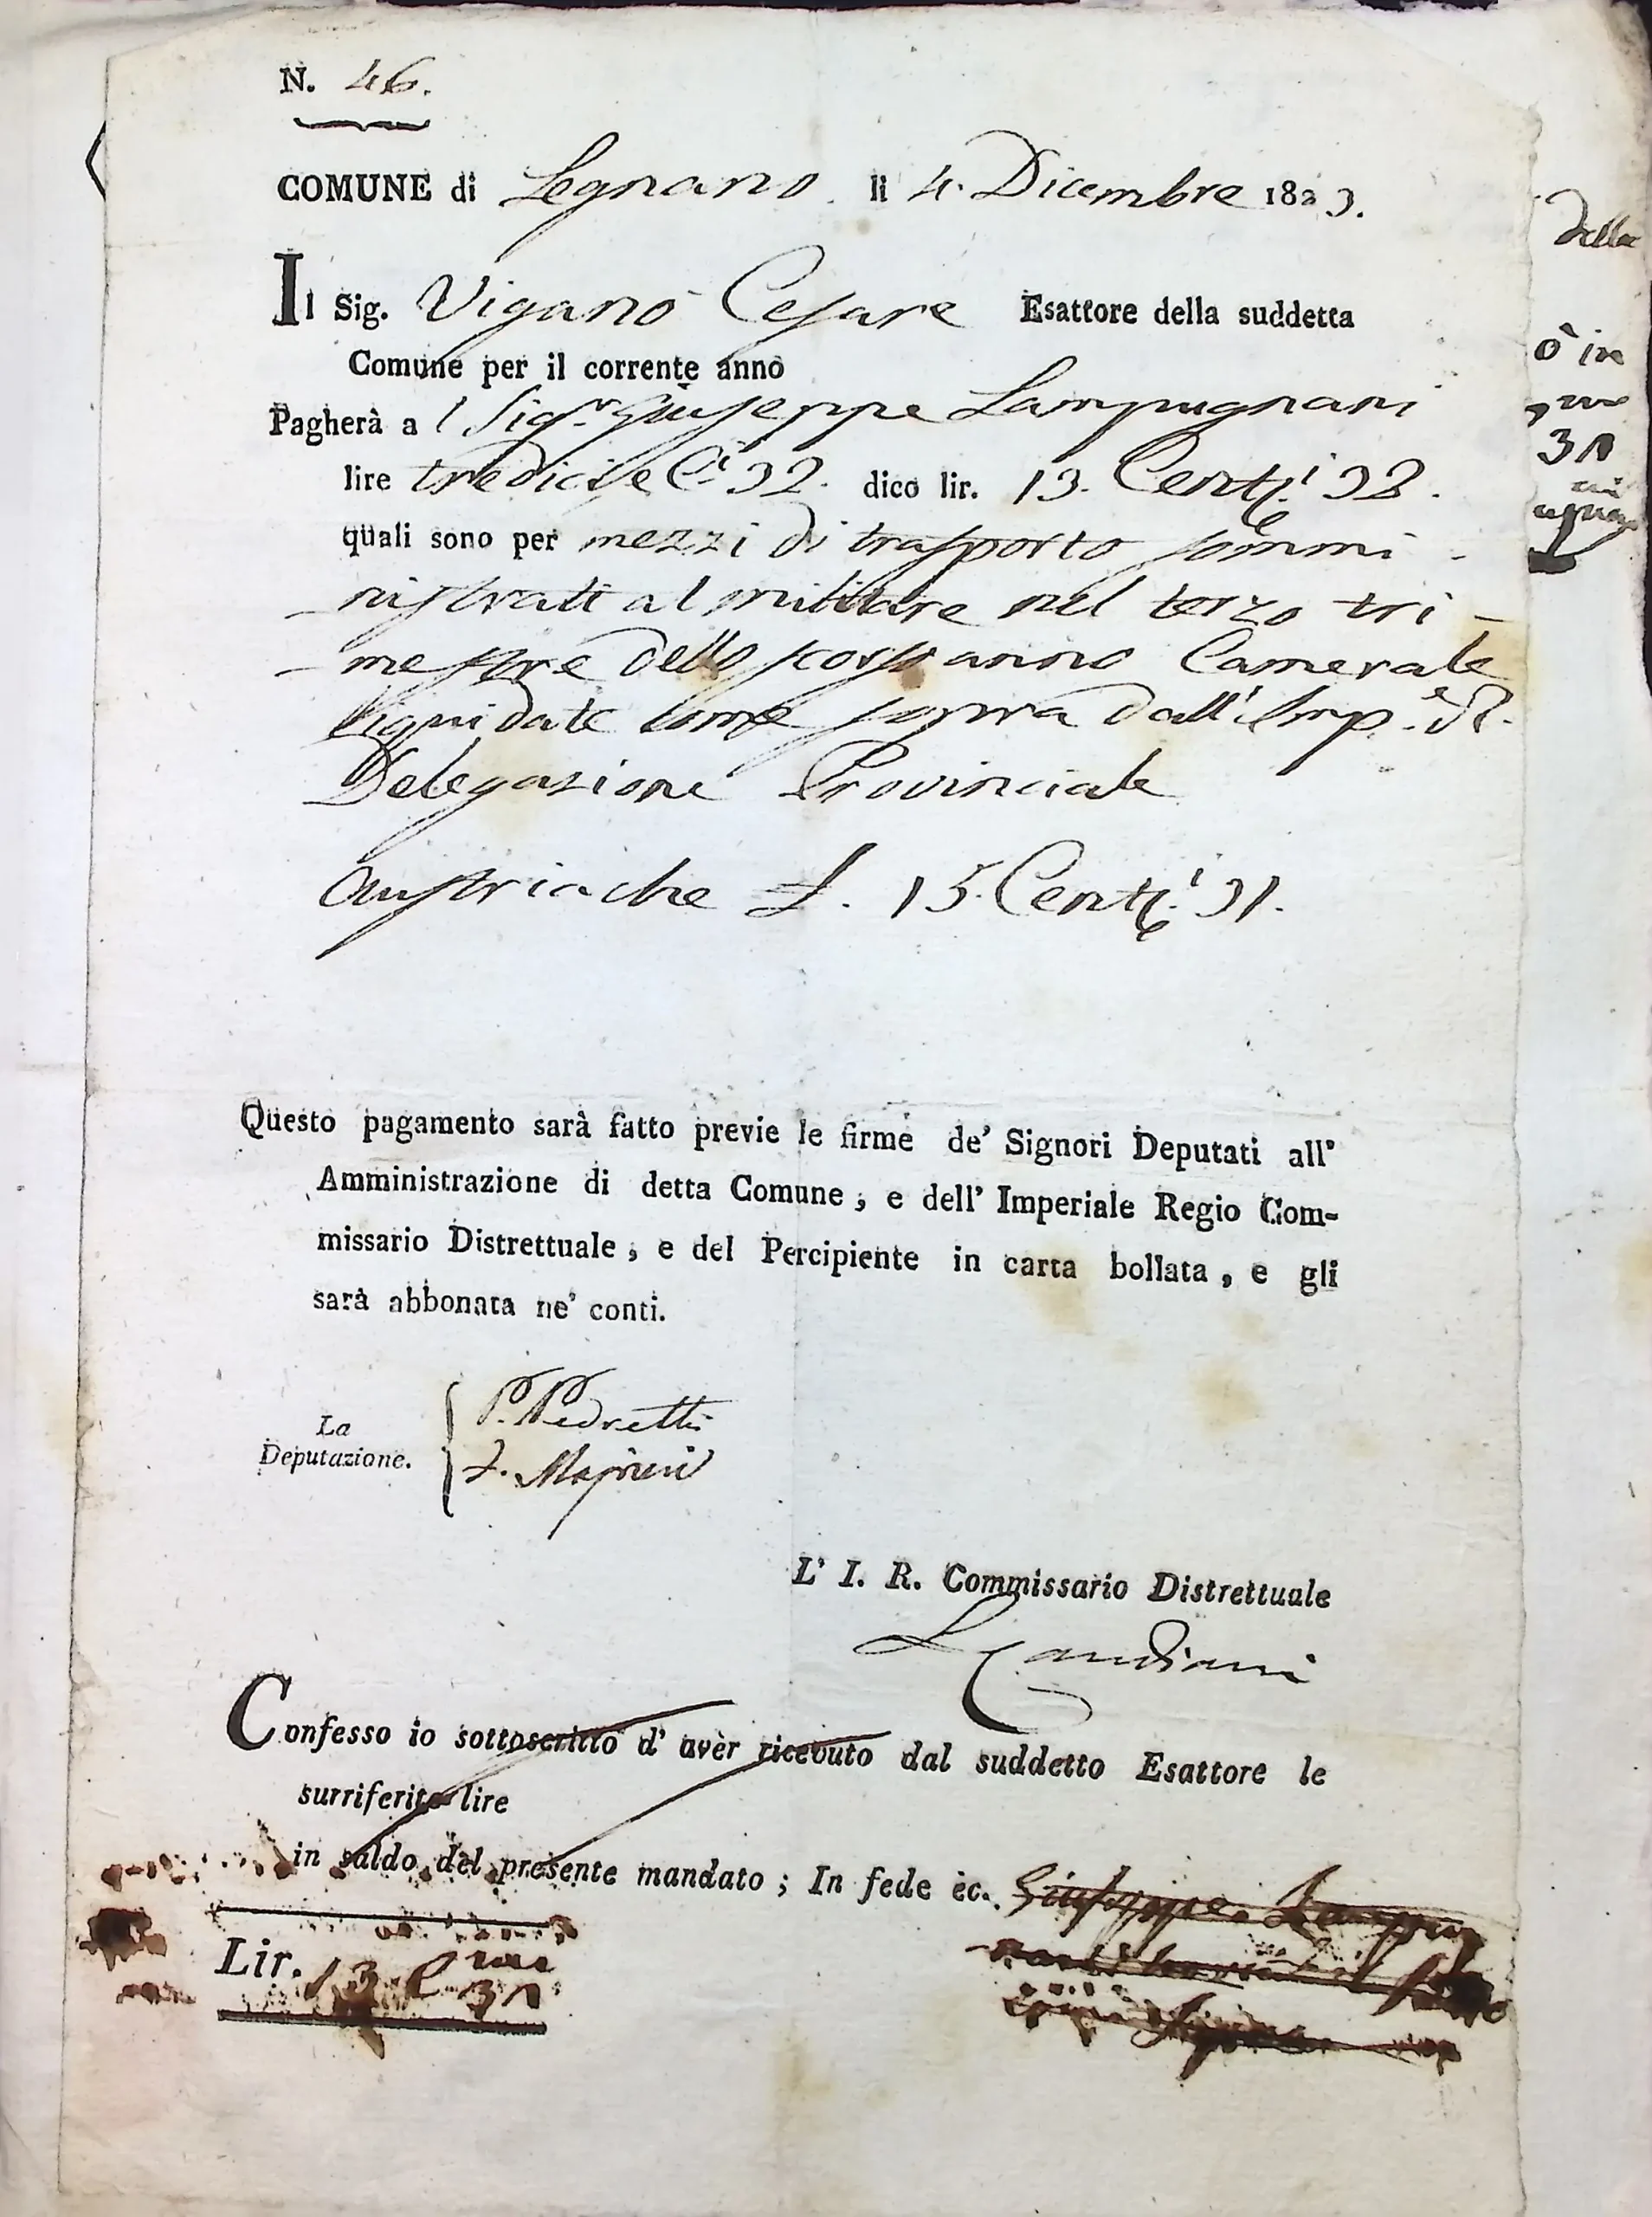 N. 46.
COMUNE di Legnano li 4. Dicembre 1823.
Il Sig. Viganò Cesare Esattore della suddetta
Comune per il corrente anno
Pagherà al Sig.r Giuseppe Lampugnani
lire tredici e C.i 32. dico lir. 13. Cent.i 32.
quali sono per mezzi di trasporto sommi-
-nistrati al militare nel terzo tri-
-mestre dello scorso anno Camerale
liquidate come sopra dall'Imp.e R.
Delegazione Provinciale
Austriache L. 15. Cent.i 31.
Questo pagamento sarà fatto previe le firme de' Signori Deputati all'
Amministrazione di detta Comune, e dell' Imperiale Regio Com-
missario Distrettuale, e del Percipiente in carta bollata, e gli
sarà abbonata ne' conti.
La
Deputazione.
P. Pedretti
L' I. R. Commissario Distrettuale
Candiani
Confesso io sottoscritto d' aver ricevuto dal suddetto Esattore le
surriferite lire
in saldo del presente mandato; In fede ec. Giuseppe Lampu
Lir. 13
della
ò in